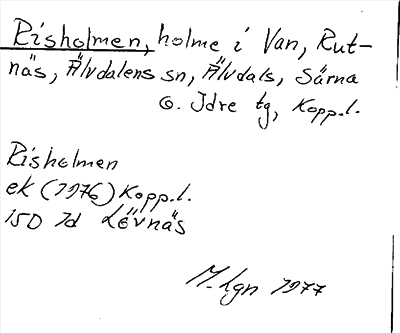 Risholmen, holme i Van, Rut-
näs, Älvdalens sn, Älvdals, Särna
o. Idre tg, Kopp.l.
Risholmen
ek (1976) Kopp.l.
15D 7d Lövnäs
M.Lgn 1977